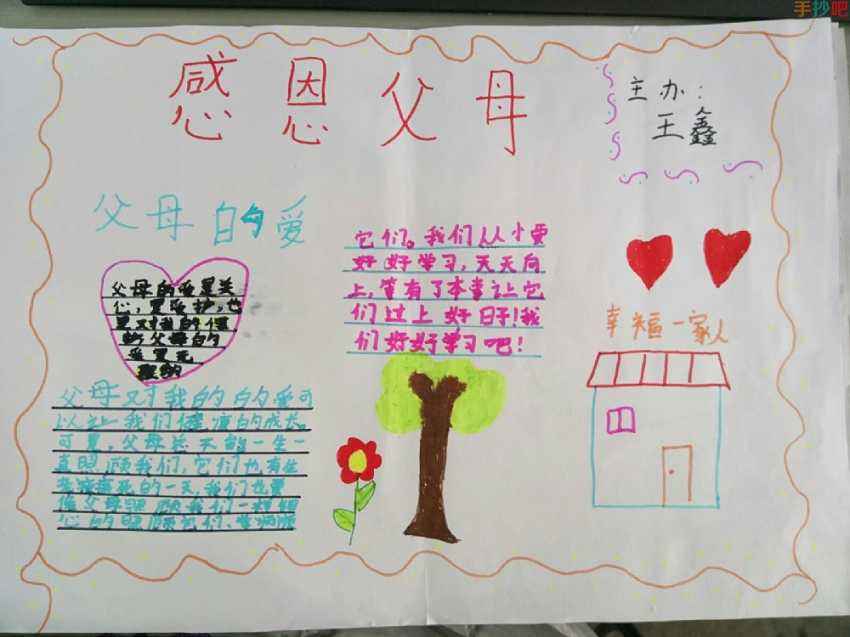 手抄吧
感恩父母
主办：
王鑫
父母的爱
父母的爱是关
心，是爱护，也
是对我的
的父母的
爱是无
父母对我的的爱可
以让我们健康的成长。
可是，父母总不能一生一
直照顾我们，它们也有生
老病死的一天，我们也要
像父母照顾我们一样细
心的照顾它们、
它们。我们从小要
好好学习，天天向
上，等有了本事让它
们过上好日子！我
们好好学习吧！
幸福一家人